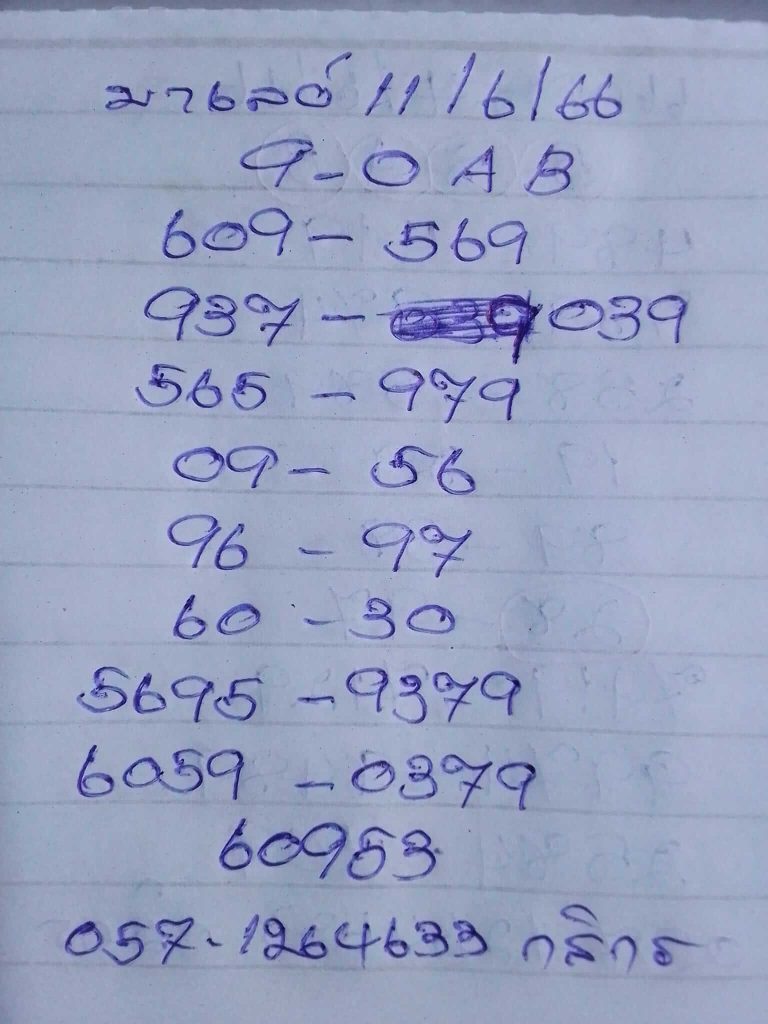 มาเลย์ 11/6/66
9-0 A B
609 - 569
937 - 039
565 - 979
09 - 56
96 - 97
60 - 30
5695 - 9379
6059 - 0379
60953
057-1264633 กสิกร